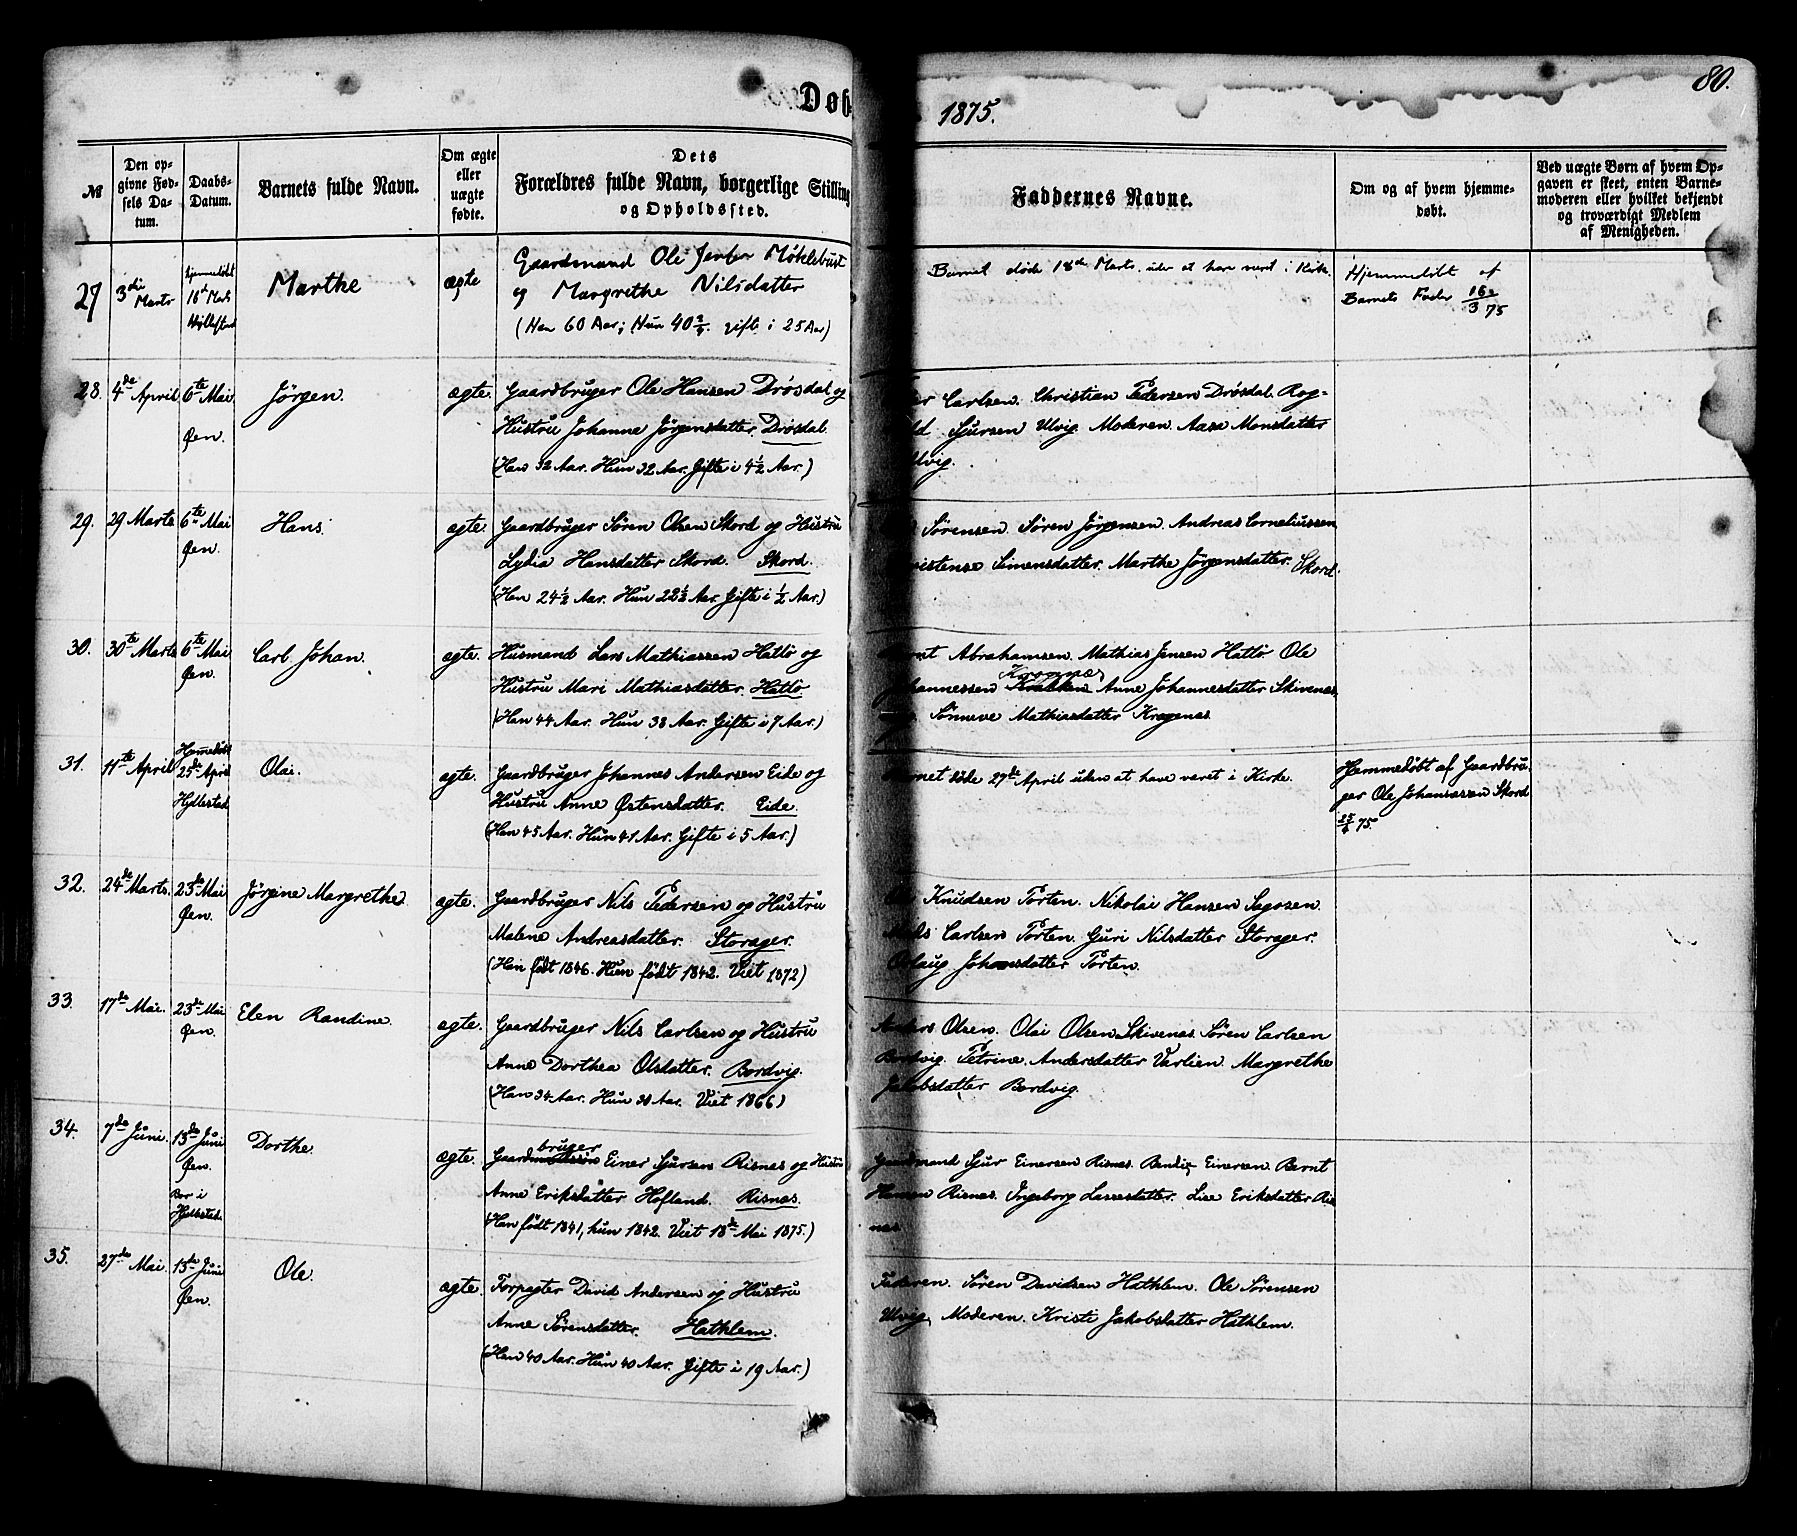 Døb
1875.
80.
№
Den op-
givne Fød-
sels Da-
tum.
Daabs-
Datum.
Barnets fulde Navn.
Om ægte
eller
uægte
fødte.
Dets
Forældres fulde Navn, borgerlige Stilling
og Opholdssted.
Faddernes Navne.
Om og af hvem hjemme-
døbt.
Ved uægte Børn af hvem Op-
gaven er skeet, enten Barne-
moderen eller hvilket bekjendt
og troværdigt Medlem
af Menigheden.
27
3die
Marts
Hjemmedöbt
16de Marts
Marthe
ægte
Gaardmand Ole Møklebust
og Margrethe Nilsdatter
(Han 60 Aar; Hun 40 gifte i 25 Aar)
Barnet døde 18de Marts uden at have været i Kirke.
Hjemmedöbt af
Barnets Fader 16/3 75
28.
4de April
6te Mai
Øen.
Jörgen.
ægte.
Gaardbruger Ole Hansen Drösdal og
Hustru Johanne Jörgensdatter. Drösdal.
(Han 32 Aar. Hun 32 Aar. Gifte i 4½ Aar.)
Carlsen. Christian Pedersen Drösdal. Rog-
Sjursen Ulvig. Moderen. Aase Monsdatter
Ulvig.
29.
29 Marts
6te Mai
Øen.
Hans.
ægte.
Gaardbruger Sören Olsen Skord og Hustru
Lydia Hansdatter Skord. Skord.
(Han 24½ Aar. Hun 22½ Aar. Gifte i ½ Aar.)
Sörensen. Sören Jörgensen. Andreas Corneliussen
Simensdatter. Marthe Jörgensdatter. Skord.
30.
30te Marts
6te Mai
Øen.
Carl Johan.
ægte.
Husmand Lars Mathiassen Hatlö og
Hustru Mari Mathiasdatter. Hatlö
(Han 44 Aar. Hun 38 Aar. Gifte i 7 Aar.)
Abrahamsen. Mathias Jensen Hatlö Ole
Johannessen Anne Johannesdatter Skivenes
Sönneve Mathiasdatter Kragenes.
31.
11te April
Hjemmedöbt
25de April
Hyllestad
Olai.
ægte.
Gaardbruger Johannes Andersen Eide og
Hustru Anne Østensdatter. Eide.
(Han 45 Aar. Hun 41 Aar. Gifte i 5 Aar.)
Barnet döde 27de April uden at have været i Kirke.
Hjemmedöbt af Gaardbru-
ger Ole Johannessen Skord
25/4 75.
32.
24de Marts.
23de Mai
Øen.
Jörgine Margrethe.
ægte.
Gaardbruger Nils Pedersen og Hustru
Malene Andreasdatter. Storager.
(Han födt 1846. Hun födt 1842. Viet 1872)
Knudsen Porten. Nikolai Hansen Sagosen.
Mads Carlsen Porten. Guri Nilsdatter Storager.
Johansdatter Porten.
33.
17de Mai.
23de Mai
Øen.
Elen Randine.
ægte.
Gaardbruger Nils Carlsen og Hustru
Anne Dorthea Olsdatter. Bordvig.
(Han 34 Aar. Hun 38 Aar. Viet 1866)
Anders Olsen. Olai Olsen Skivenes. Sören Carlsen
Bordvig. Petrine Andersdatter Varlien. Margrethe
Jakobsdatter Bordvig.
34.
7de Juni.
13de Juni
Øen.
Bor i
Hyllestad.
Dorthe.
ægte.
bruger
Gaard Einer Sjursen Risnes og Hustru
Anne Eriksdatter Hofland. Risnes.
(Han födt 1841, hun 1842. Viet 18de Mai 1875.)
Gaardmand Sjur Einersen Risnes. Bendix Einersen. Bernt
Hansen Risnes. Ingeborg Lassesdatter. Lise Eriksdatter Ris-
nes.
35.
27de Mai.
13de Juni
Øen.
Ole.
ægte.
Forpagter David Andersen og Hustru
Anne Sörensdatter. Hathlem.
(Han 40 Aar. Hun 40 Aar. Gifte i 19 Aar.)
Faderen. Sören Davidsen Hathlem. Ole Sörensen
Ulvig. Moderen. Kristi Jakobsdatter Hathlem.